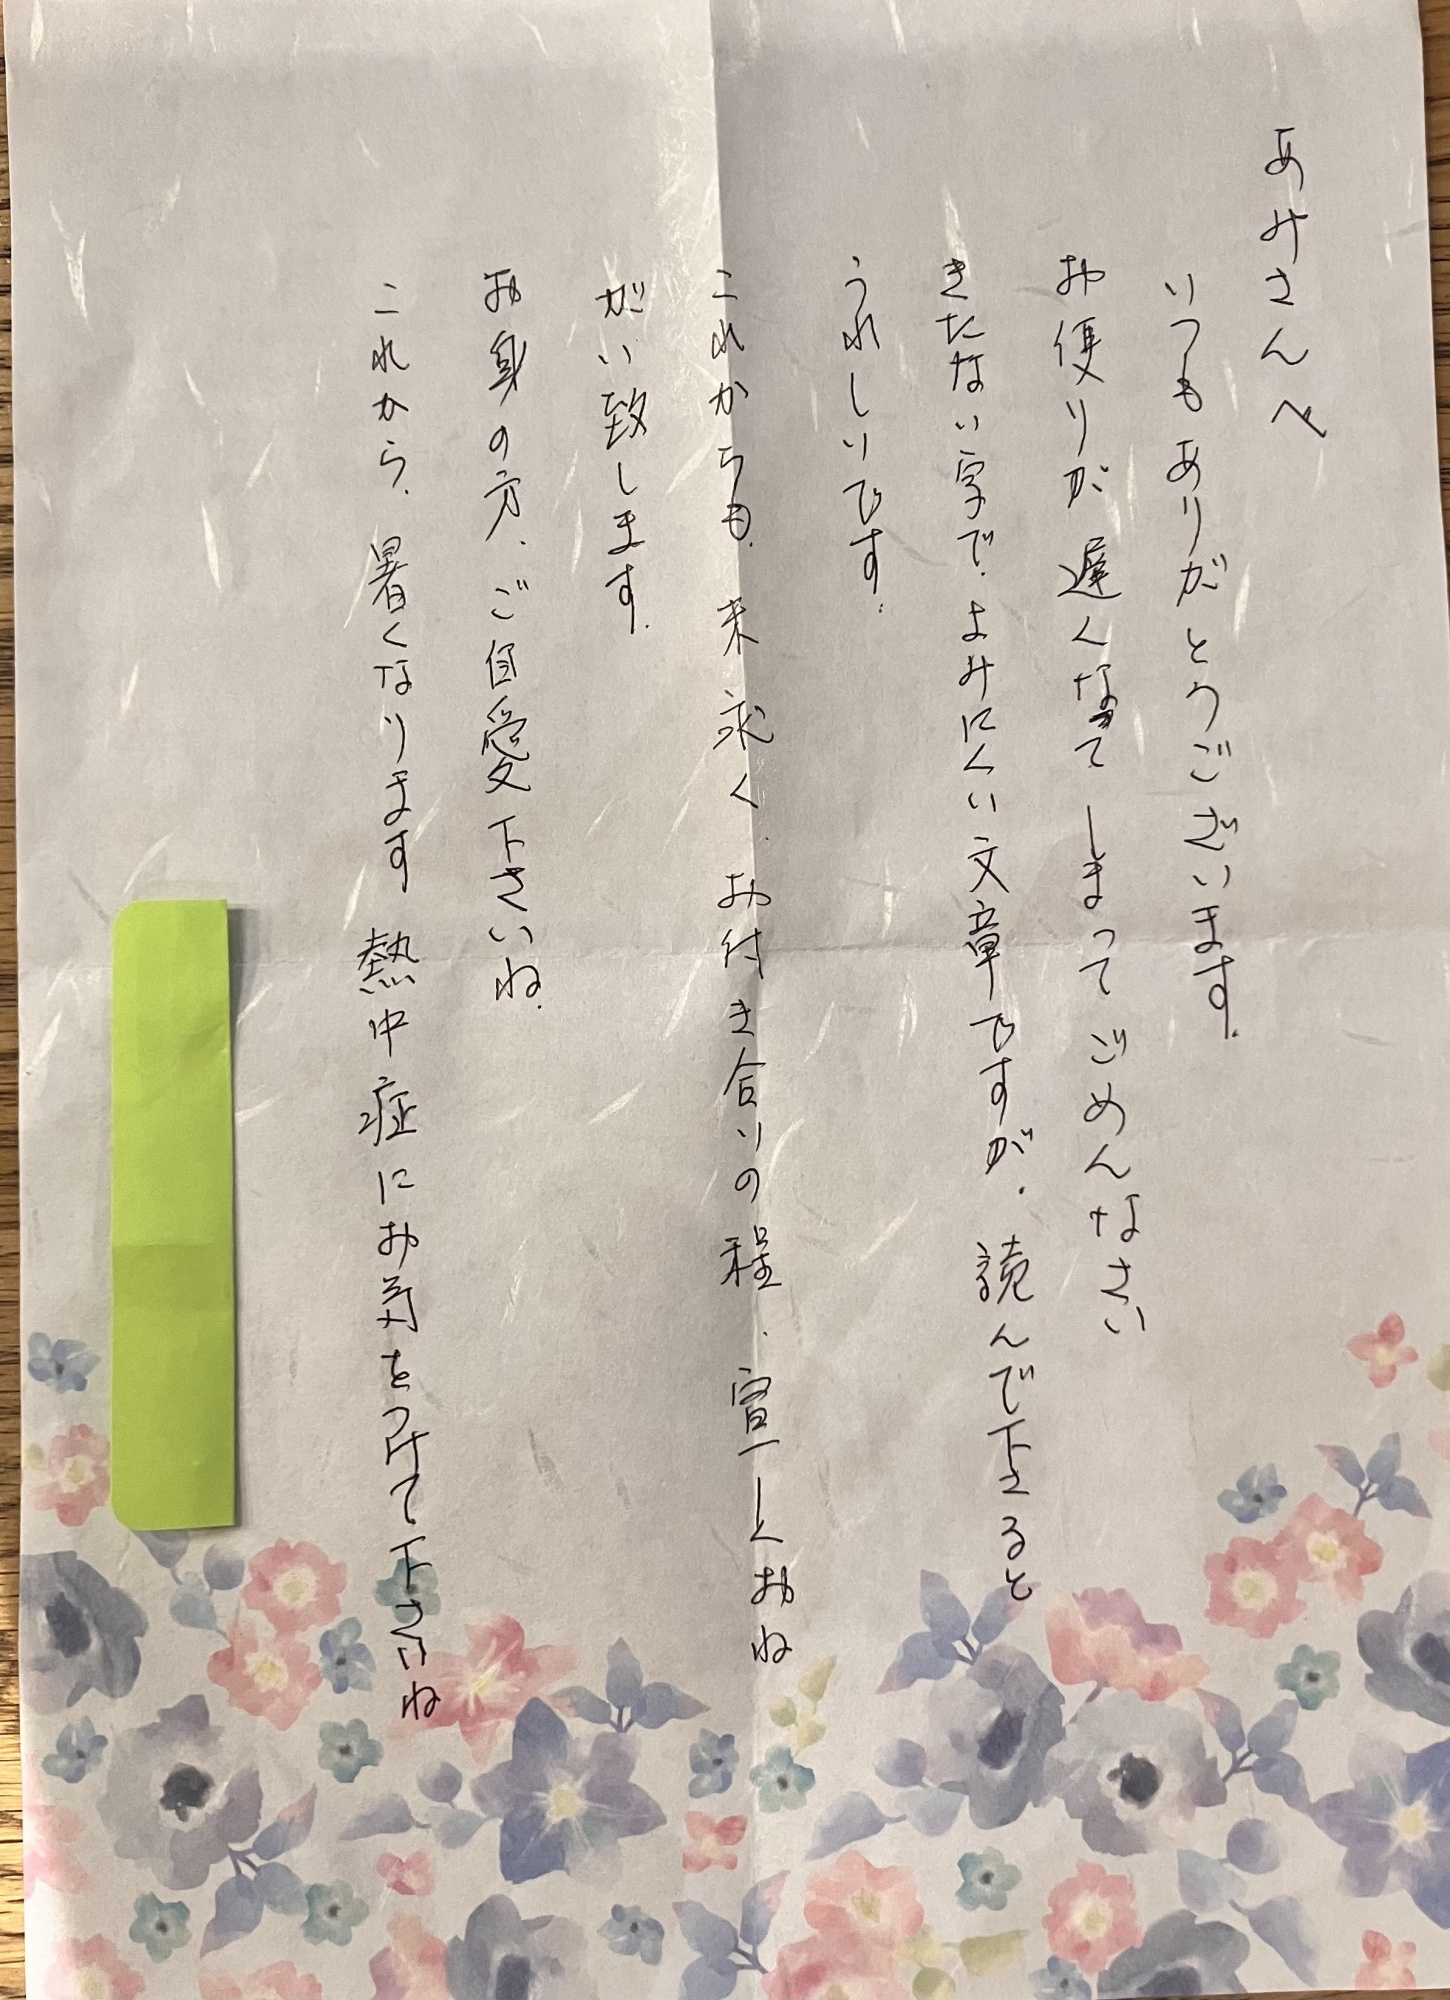 あみさんへ
いつもありがとうございます。
お便りが遅くなってしまってごめんなさい
きたない字で、よみにくい文章ですが、読んで下さると
うれしいです。
これからも、末永く、お付き合いの程、宜しくおね
がい致します。
お身の方、ご自愛下さいね。
これから、暑くなります 熱中症にお気をつけて下さいね